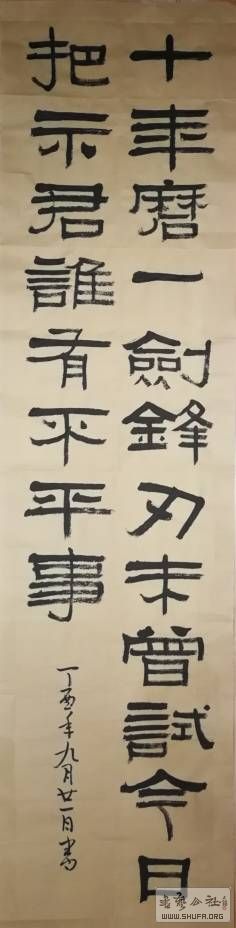 十年磨一劍鋒刃未曾試今日
把示君誰有不平事
丁酉年九月廿一日書
書藝公社
WWW.SHUFA.ORG